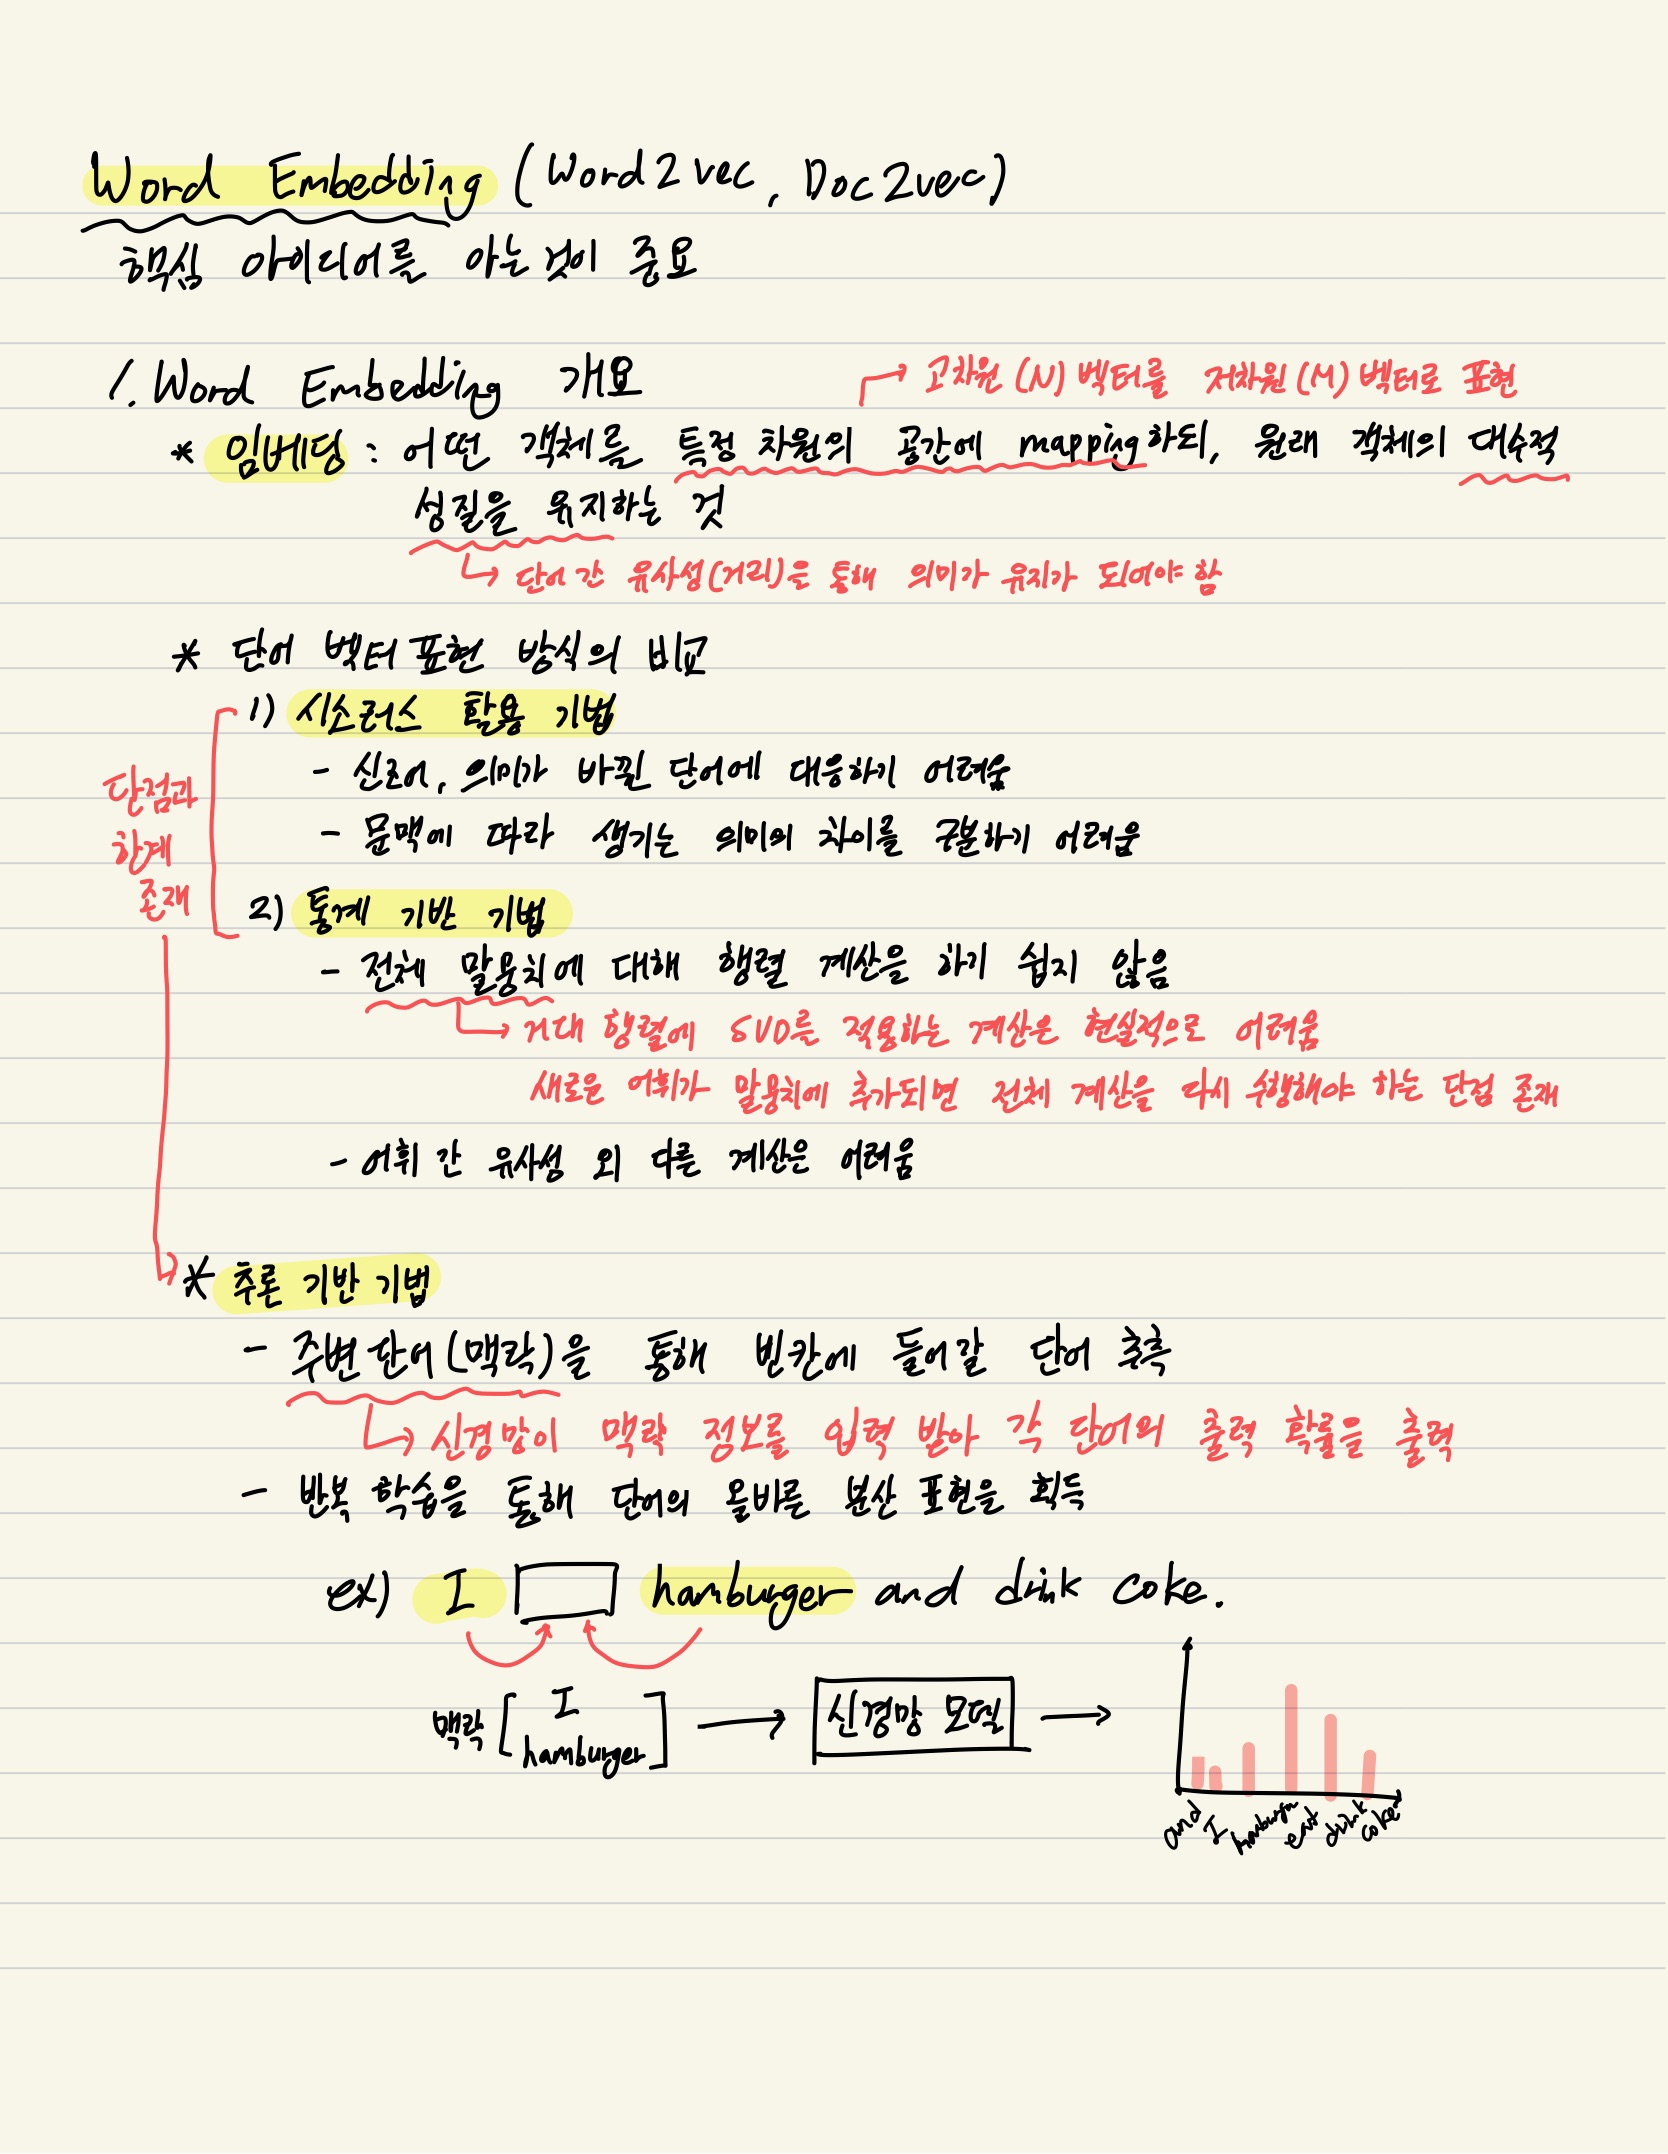 Word Embedding (Word2vec, Doc2vec)
핵심 아이디어를 아는 것이 중요
1. Word Embedding 개요
→ 고차원(N) 벡터를 저차원(M) 벡터로 표현
* 임베딩 : 어떤 객체를 특정 차원의 공간에 mapping하되, 원래 객체의 대수적
성질을 유지하는 것
→ 단어 간 유사성(거리)을 통해 의미가 유지가 되어야 함
* 단어 벡터 표현 방식의 비교
1) 시소러스 활용 기법
- 신조어, 의미가 바뀐 단어에 대응하기 어려움
단점과
- 문맥에 따라 생기는 의미의 차이를 구분하기 어려움
한계
존재
2) 통계 기반 기법
- 전체 말뭉치에 대해 행렬 계산을 하기 쉽지 않음
→ 거대 행렬에 SVD를 적용하는 계산은 현실적으로 어려움
새로운 어휘가 말뭉치에 추가되면 전체 계산을 다시 수행해야 하는 단점 존재
- 어휘 간 유사성 외 다른 계산은 어려움
* 추론 기반 기법
- 주변 단어(맥락)을 통해 빈칸에 들어갈 단어 추측
→ 신경망이 맥락 정보를 입력 받아 각 단어의 출력 확률을 출력
- 반복 학습을 통해 단어의 올바른 분산 표현을 획득
ex) I hamburger and drink coke.
맥락 [ I
hamburger ]
→ 신경망 모델 →
and I hamburger eat drink coke